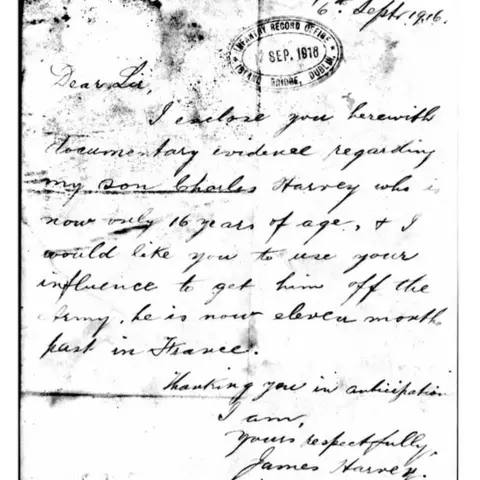 6th Sept. 1916.
INFANTRY RECORD OFFICE
7 SEP. 1916
ISLAND BRIDGE, DUBLIN.
Dear Sir,
I enclose you herewith
documentary evidence regarding
my son Charles Harvey who is
now only 16 years of age, & I
would like you to use your
influence to get him off the
Army, he is now eleven months
past in France.
Thanking you in anticipation
I am,
Yours respectfully,
James Harvey.